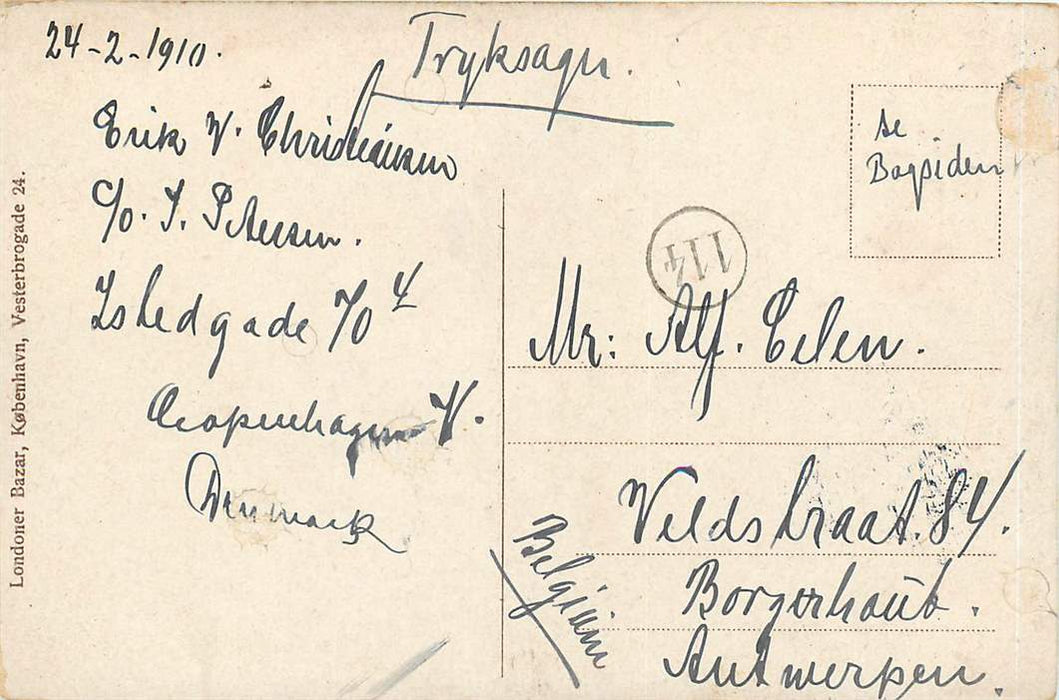 24-2-1910.
Tryksager.
Erik V. Christiansen
c/o. I. Petersen.
Istedgade 70 4
Copenhagen V.
Denmark
Londoner Bazar, København, Vesterbrogade 24.
se
Bagsiden
114
Mr: Alf. Eelen.
Veldstraat. 84.
Borgerhout.
Antwerpen.
Belgium